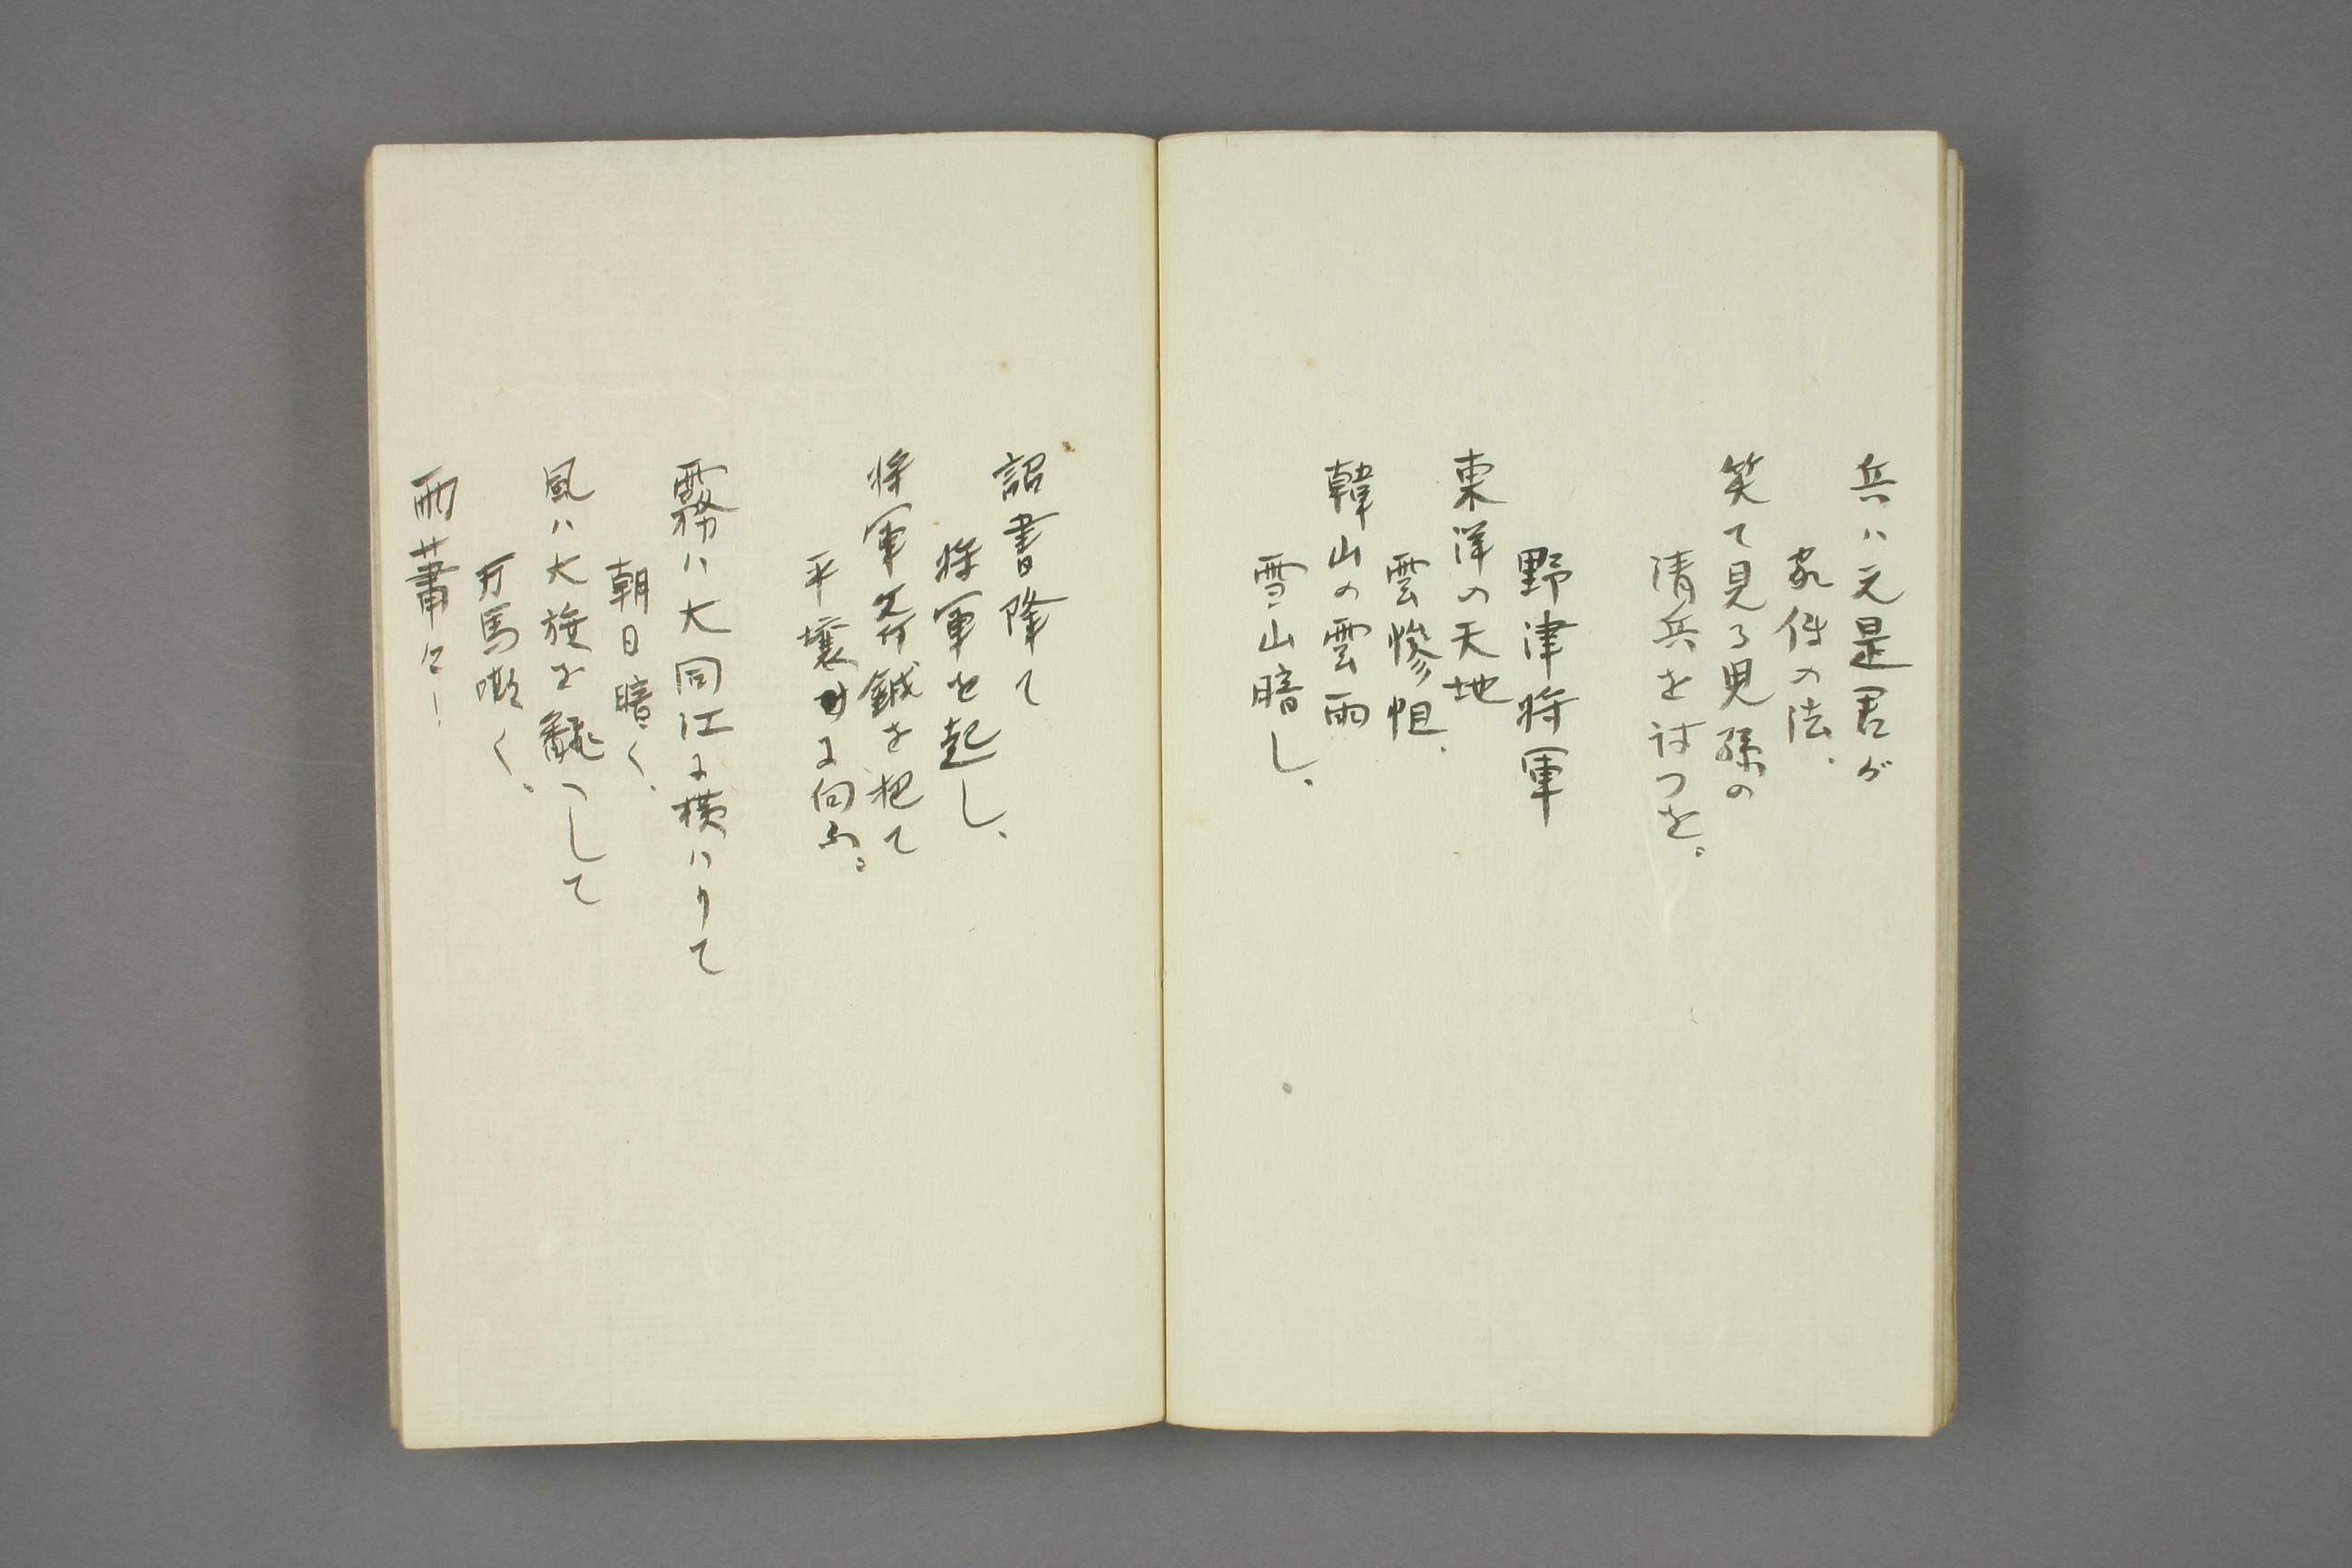 兵ハ元是君が
家傳の法、
笑て見る児孫の
清兵を討つを。
野津将軍
東洋の天地
雲惨怛、
韓山の雲雨
雪山暗し、
詔書降て
将軍を起し、
将軍斧鉞を把て
平壌に向ふ。
霧ハ大同江に横ハりて
朝日暗く、
風ハ大旗を飜つして
万馬嘶く、
雨蕭々！